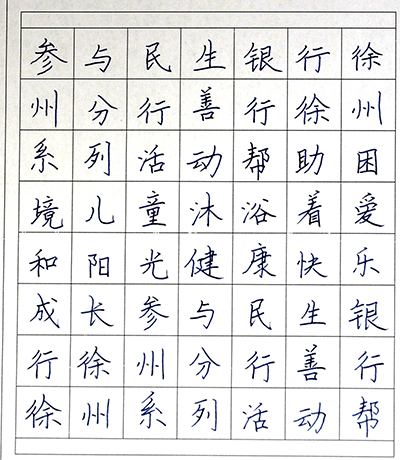 参与民生银行徐
州分行善行徐州
系列活动帮助困
境儿童沐浴着爱
和阳光健康快乐
成长参与民生银
行徐州分行善行
徐州系列活动帮